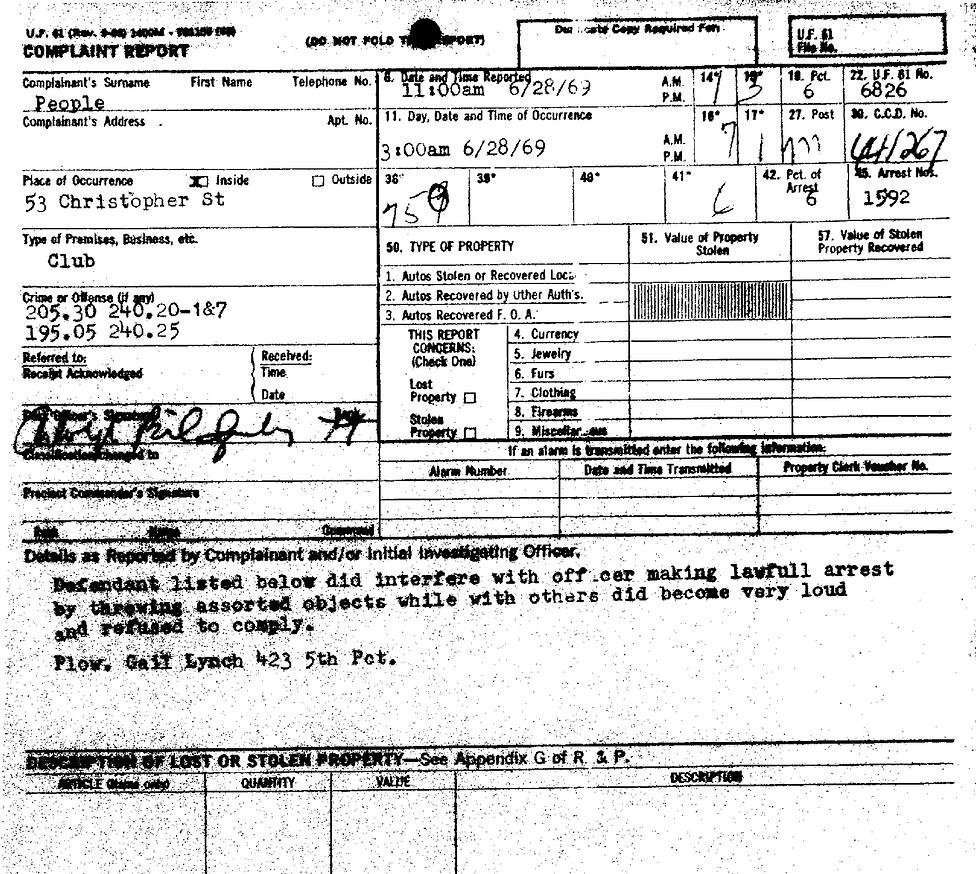 U.F. 61
COMPLAINT REPORT
(DO NOT FOLD
Copy Required For:
U.F. 61
File No.
Complainant's Surname First Name Telephone No.
People
Complainant's Address Apt. No.
8. Date and Time Reported
11:00am 6/28/69
A.M.
P.M.
14*
18. Pct.
6
22. U.F. 61 No.
6826
11. Day, Date and Time of Occurrence
3:00am 6/28/69
A.M.
P.M.
16*
7
17*
1
27. Post
30. C.C.D. No.
Place of Occurrence Inside Outside
53 Christopher St
38*
39*
40*
41*
6
42. Pct. of
Arrest
6
45. Arrest Nos.
1592
Type of Premises, Business, etc.
Club
Crime or Offense (if any)
205.30 240.20-1&7
195.05 240.25
Referred to:
Receipt Acknowledged
Received:
Time
Date
Classification Changed to
Precinct Commander's Signature
Name
Command
50. TYPE OF PROPERTY
51. Value of Property
Stolen
57. Value of Stolen
Property Recovered
1. Autos Stolen or Recovered
2. Autos Recovered by Other Auth's.
3. Autos Recovered F. O. A.
THIS REPORT
CONCERNS:
(Check One)
Lost
Property
Stolen
Property
4. Currency
5. Jewelry
6. Furs
7. Clothing
8. Firearms
9. Miscellaneous
If an alarm is transmitted enter the following information:
Alarm Number Date and Time Transmitted Property Clerk Voucher No.
Details as Reported by Complainant and/or Initial Investigating Officer.
Defendant listed below did interfere with officer making lawfull arrest
by throwing assorted objects while with others did become very loud
and refused to comply.
Plow. Gail Lynch 423 5th Pct.
DESCRIPTION OF LOST OR STOLEN PROPERTY—See Appendix G of R. & P.
ARTICLE QUANTITY VALUE DESCRIPTION